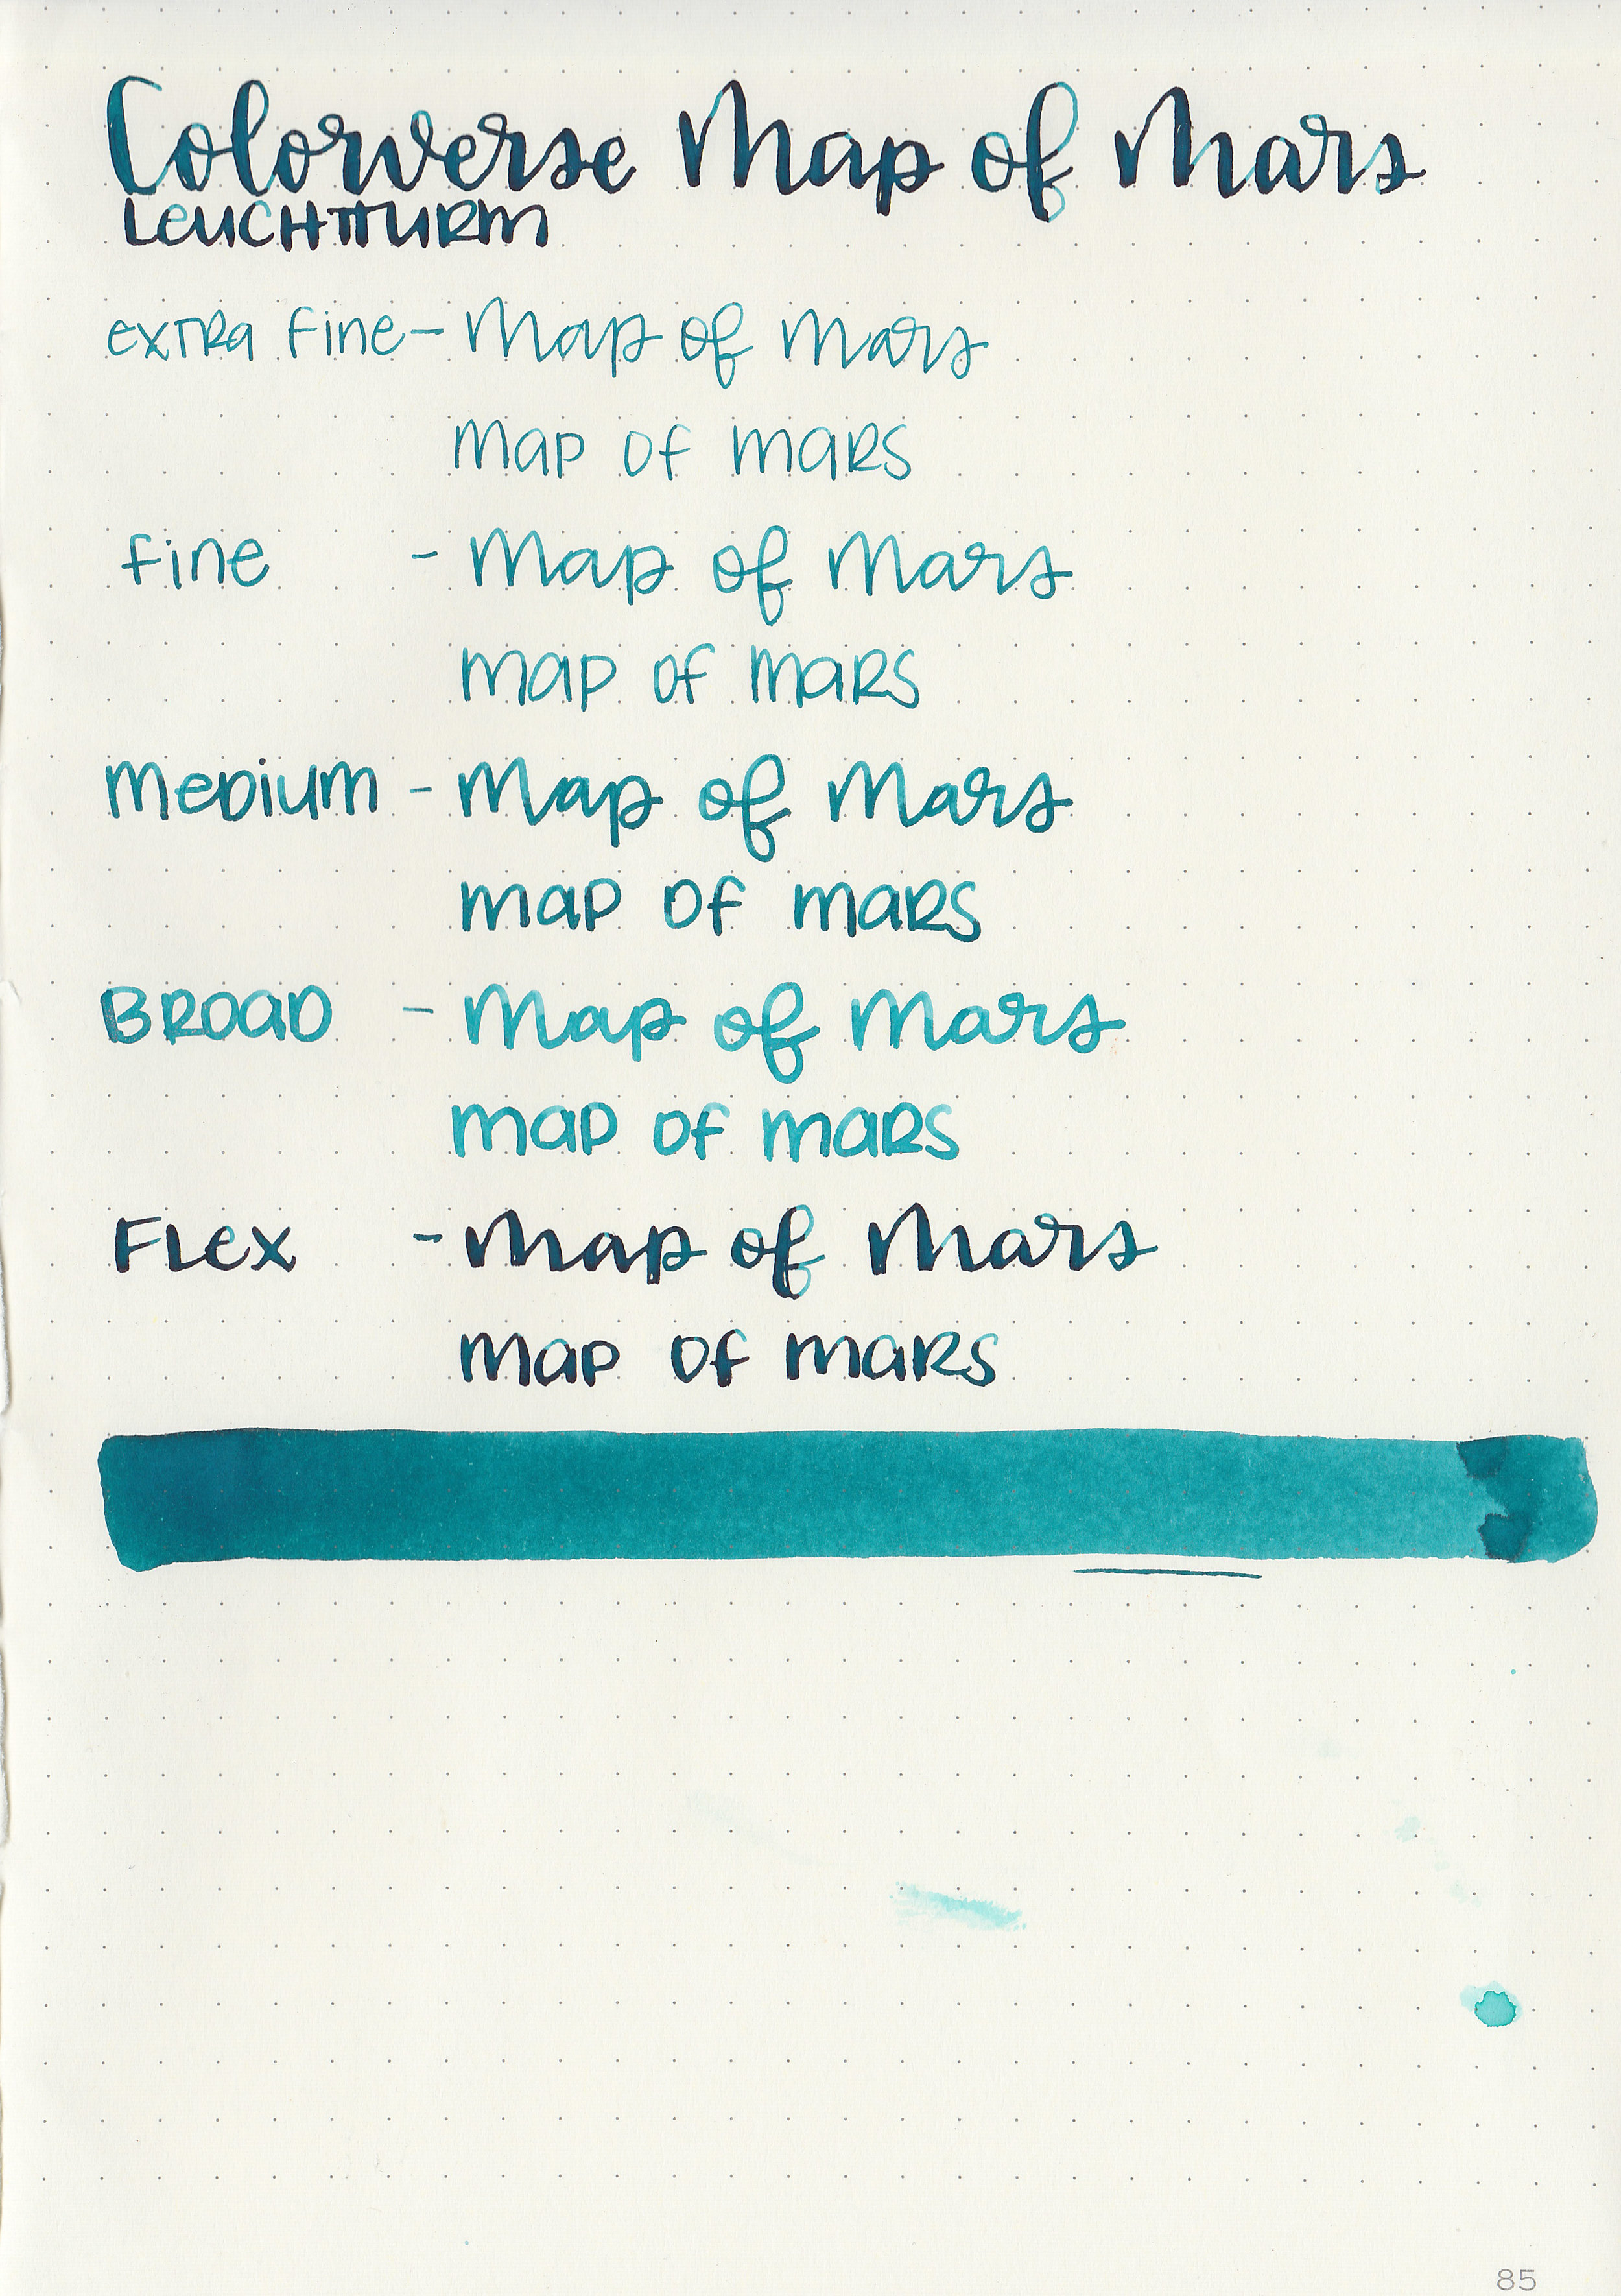 Colorverse Map of Mars
LEUCHTTURM
extra fine - Map of Mars
map of mars
fine - Map of Mars
map of mars
medium - Map of Mars
map of mars
Broad - Map of Mars
map of mars
Flex - Map of Mars
map of mars
85